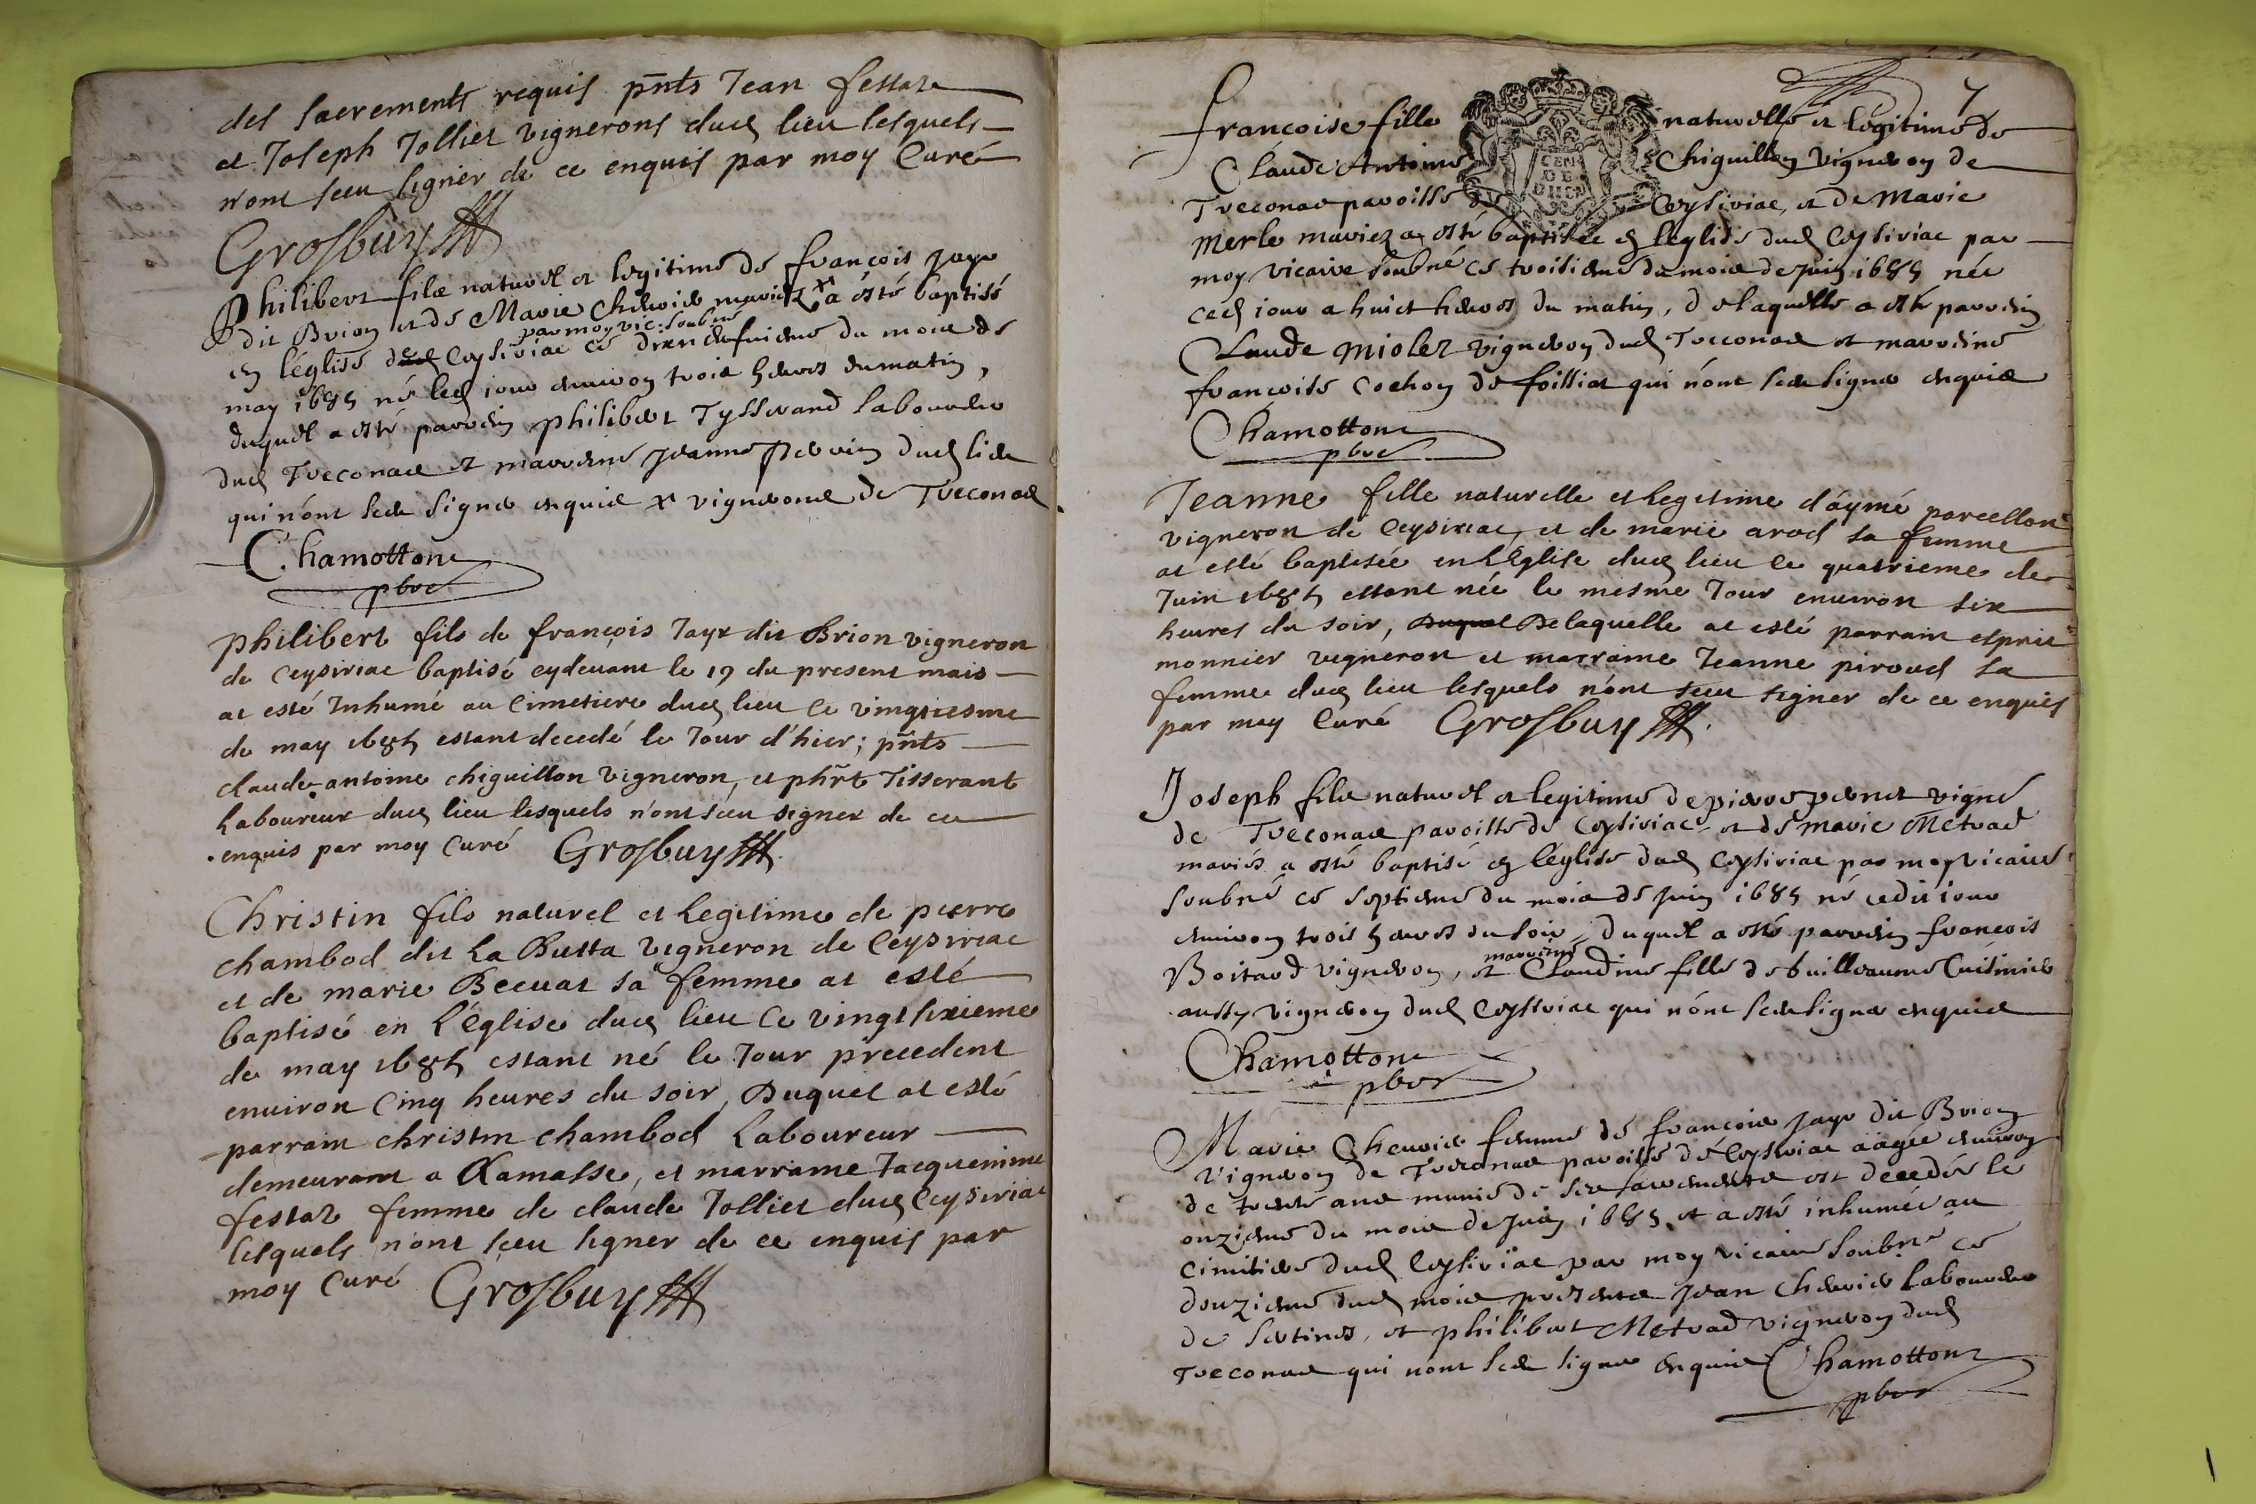 des sacrements requis pnts Jean festaz
et Joseph Jollier vignerons dud lieu lesquels
n'ont sceu signer de ce enquis par moy Curé
Grosbuy
Philibert filz naturel et legitime de françois Jayr
dit Brion et de Marie Chevrier mariez x a esté baptisé
par moy vic. soubné
en l'église dud Ceysiriac ce dixneufuieme du mois de
may 1685 né led jour environ trois heures du matin,
duquel a esté parrein philibert Tysserand laboureur
dud Treconas et marreine Jeanne Perrin dud lieu
qui n'ont sceu signer enquis x vignerons de Treconas
C. hamotton
pbre
philibert fils de françois Jayr dit Brion vigneron
de Ceysiriac baptisé cydevant le 19 du present mois
at esté Inhumé au Cimetiere dud lieu Ce vingtiesme
de may 1685 estant decedé le Jour d'hier; pnts
claude antoine chiguillon vigneron, et phirt Tisserant
Laboureur dud lieu lesquels n'ont sceu signer de ce
enquis par moy Curé Grosbuy
Christin fils naturel et Legitime de pierre
chambod dit La Butta vigneron de Ceysiriac
et de marie Becuat sa femme at esté
baptisé en L'église dud lieu Ce vingt sixieme
de may 1685 estant né le Jour precedent
environ Cinq heures du soir, Duquel at esté
parrain christin chambod Laboureur
demeurant a Ramasse, et marraine Jacquemine
festaz femme de claude Jollier dud Ceysiriac
lesquels n'ont sceu signer de ce enquis par
moy Curé Grosbuy
7
françoise fille naturelle et legitime de
Claude Antoine Chiguillon vigneron de
Treconas paroisse de Ceysiriac, et de Marie
Merle mariez a esté baptisée en leglise dud Ceysiriac par
moy vicaire soubné ce troisieme du mois de juin 1685 née
ced jour a huict heures du matin, de laquelle a esté parrein
Claude Miolez vigneron dud Treconas et marreine
françoise Cochon de foissiat qui n'ont sceu signer enquis
Chamotton
pbre
Jeanne fille naturelle et Legitime d'aymé porcellon
vigneron de Ceysiriac, et de marie arod sa femme
at esté baptisée en L'église dud lieu le quatrieme de
Juin 1685 estant née le mesme Jour environ six
heures du soir, Duquel Delaquelle at esté parrain esprit
monnier vigneron et marraine Jeanne piroud sa
femme dud lieu lesquels n'ont sceu signer de ce enquis
par moy Curé Grosbuy
Joseph filz naturel et legitime de pierre pernet vigne
de Treconas paroisse de Ceysiriac et de Marie Metrad
mariés a esté baptisé en l'église dud Ceysiriac par moy vicaire
soubné ce septieme du mois de juin 1685 né cedit jour
environ trois heures du soir, duquel a esté parrein francois
Boitard vigneron, et marreine Claudine fille de Guilleaume Cuisinier
aussy vigneron dud Ceysiriac qui n'ont sceu signer enquis
Chamotton
pbre
Marie Chevrier femme de françois Jayr dit Brion
vigneron de Treconas paroisse de Ceysiriac aagée environ
de trente ans munie de ses sacrements est decedée le
onzieme du mois de Juin 1685 et a esté inhumée au
cimitiere dud Ceysiriac par moy vicaire soubné ce
douzieme dud mois presents Jean Chevrier laboureur
de et philibert Metrad vigneron dud
Treconas qui n'ont sceu signer enquis Chamotton
pbre